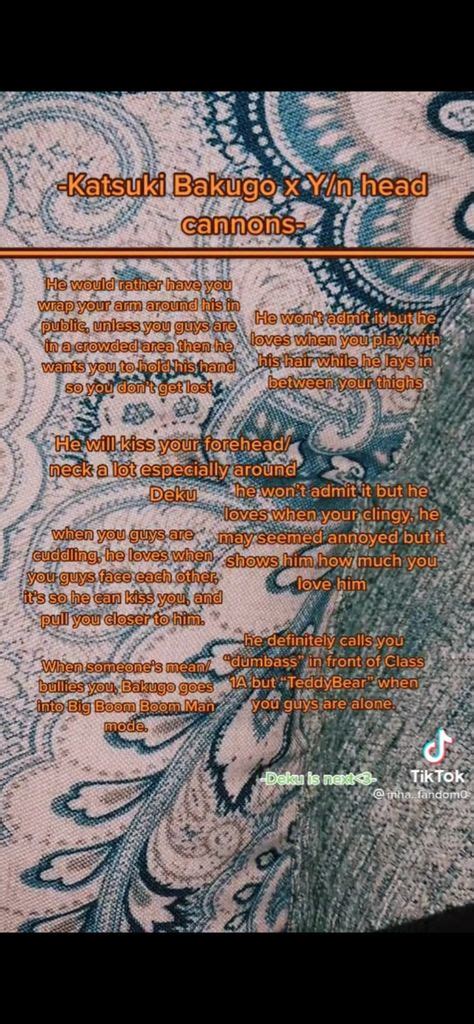 -Katsuki Bakugo x Y/n head
cannons-
He would rather have you
wrap your arm around his in
public, unless you guys are
in a crowded area then he
wants you to hold his hand
so you don't get lost
He won't admit it but he
loves when you play with
his hair while he lays in
between your thighs
He will kiss your forehead/
neck a lot especially around
Deku
he won't admit it but he
loves when your clingy, he
may seemed annoyed but it
shows him how much you
love him
when you guys are
cuddling, he loves when
you guys face each other,
it's so he can kiss you, and
pull you closer to him.
he definitely calls you
"dumbass" in front of Class
1A but "TeddyBear" when
you guys are alone.
When someone's mean/
bullies you, Bakugo goes
into Big Boom Boom Man
mode.
-Deku is next<3-
TikTok
@mha..fandom0